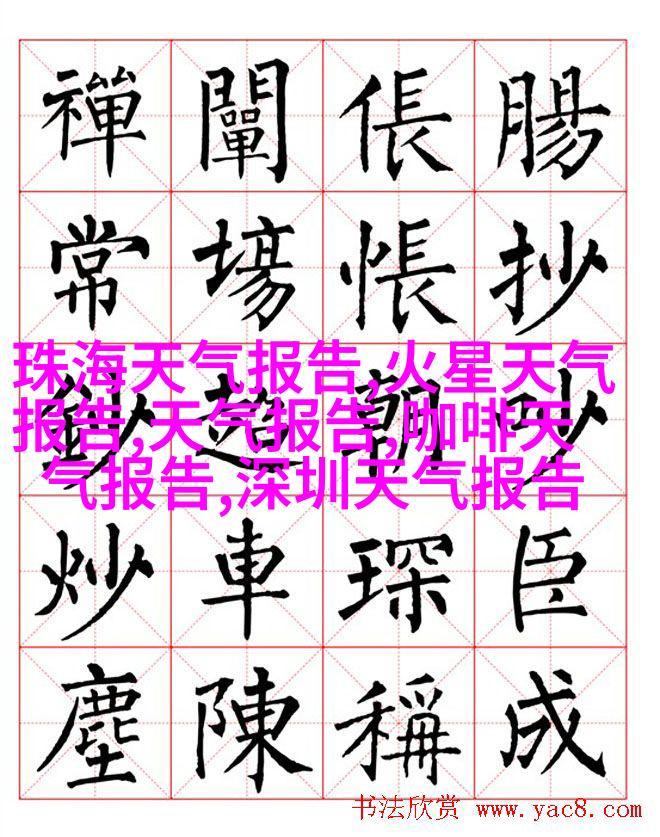 禪 闡 倀 腸
常 場 悵 抄
珠海天气报告,火星天气
报告,天气报告,咖啡天
气报告,深圳天气报告
鈔 超 朝 吵
炒 車 琛 臣
塵 陳 稱 成
书法欣赏 www.yac8.com